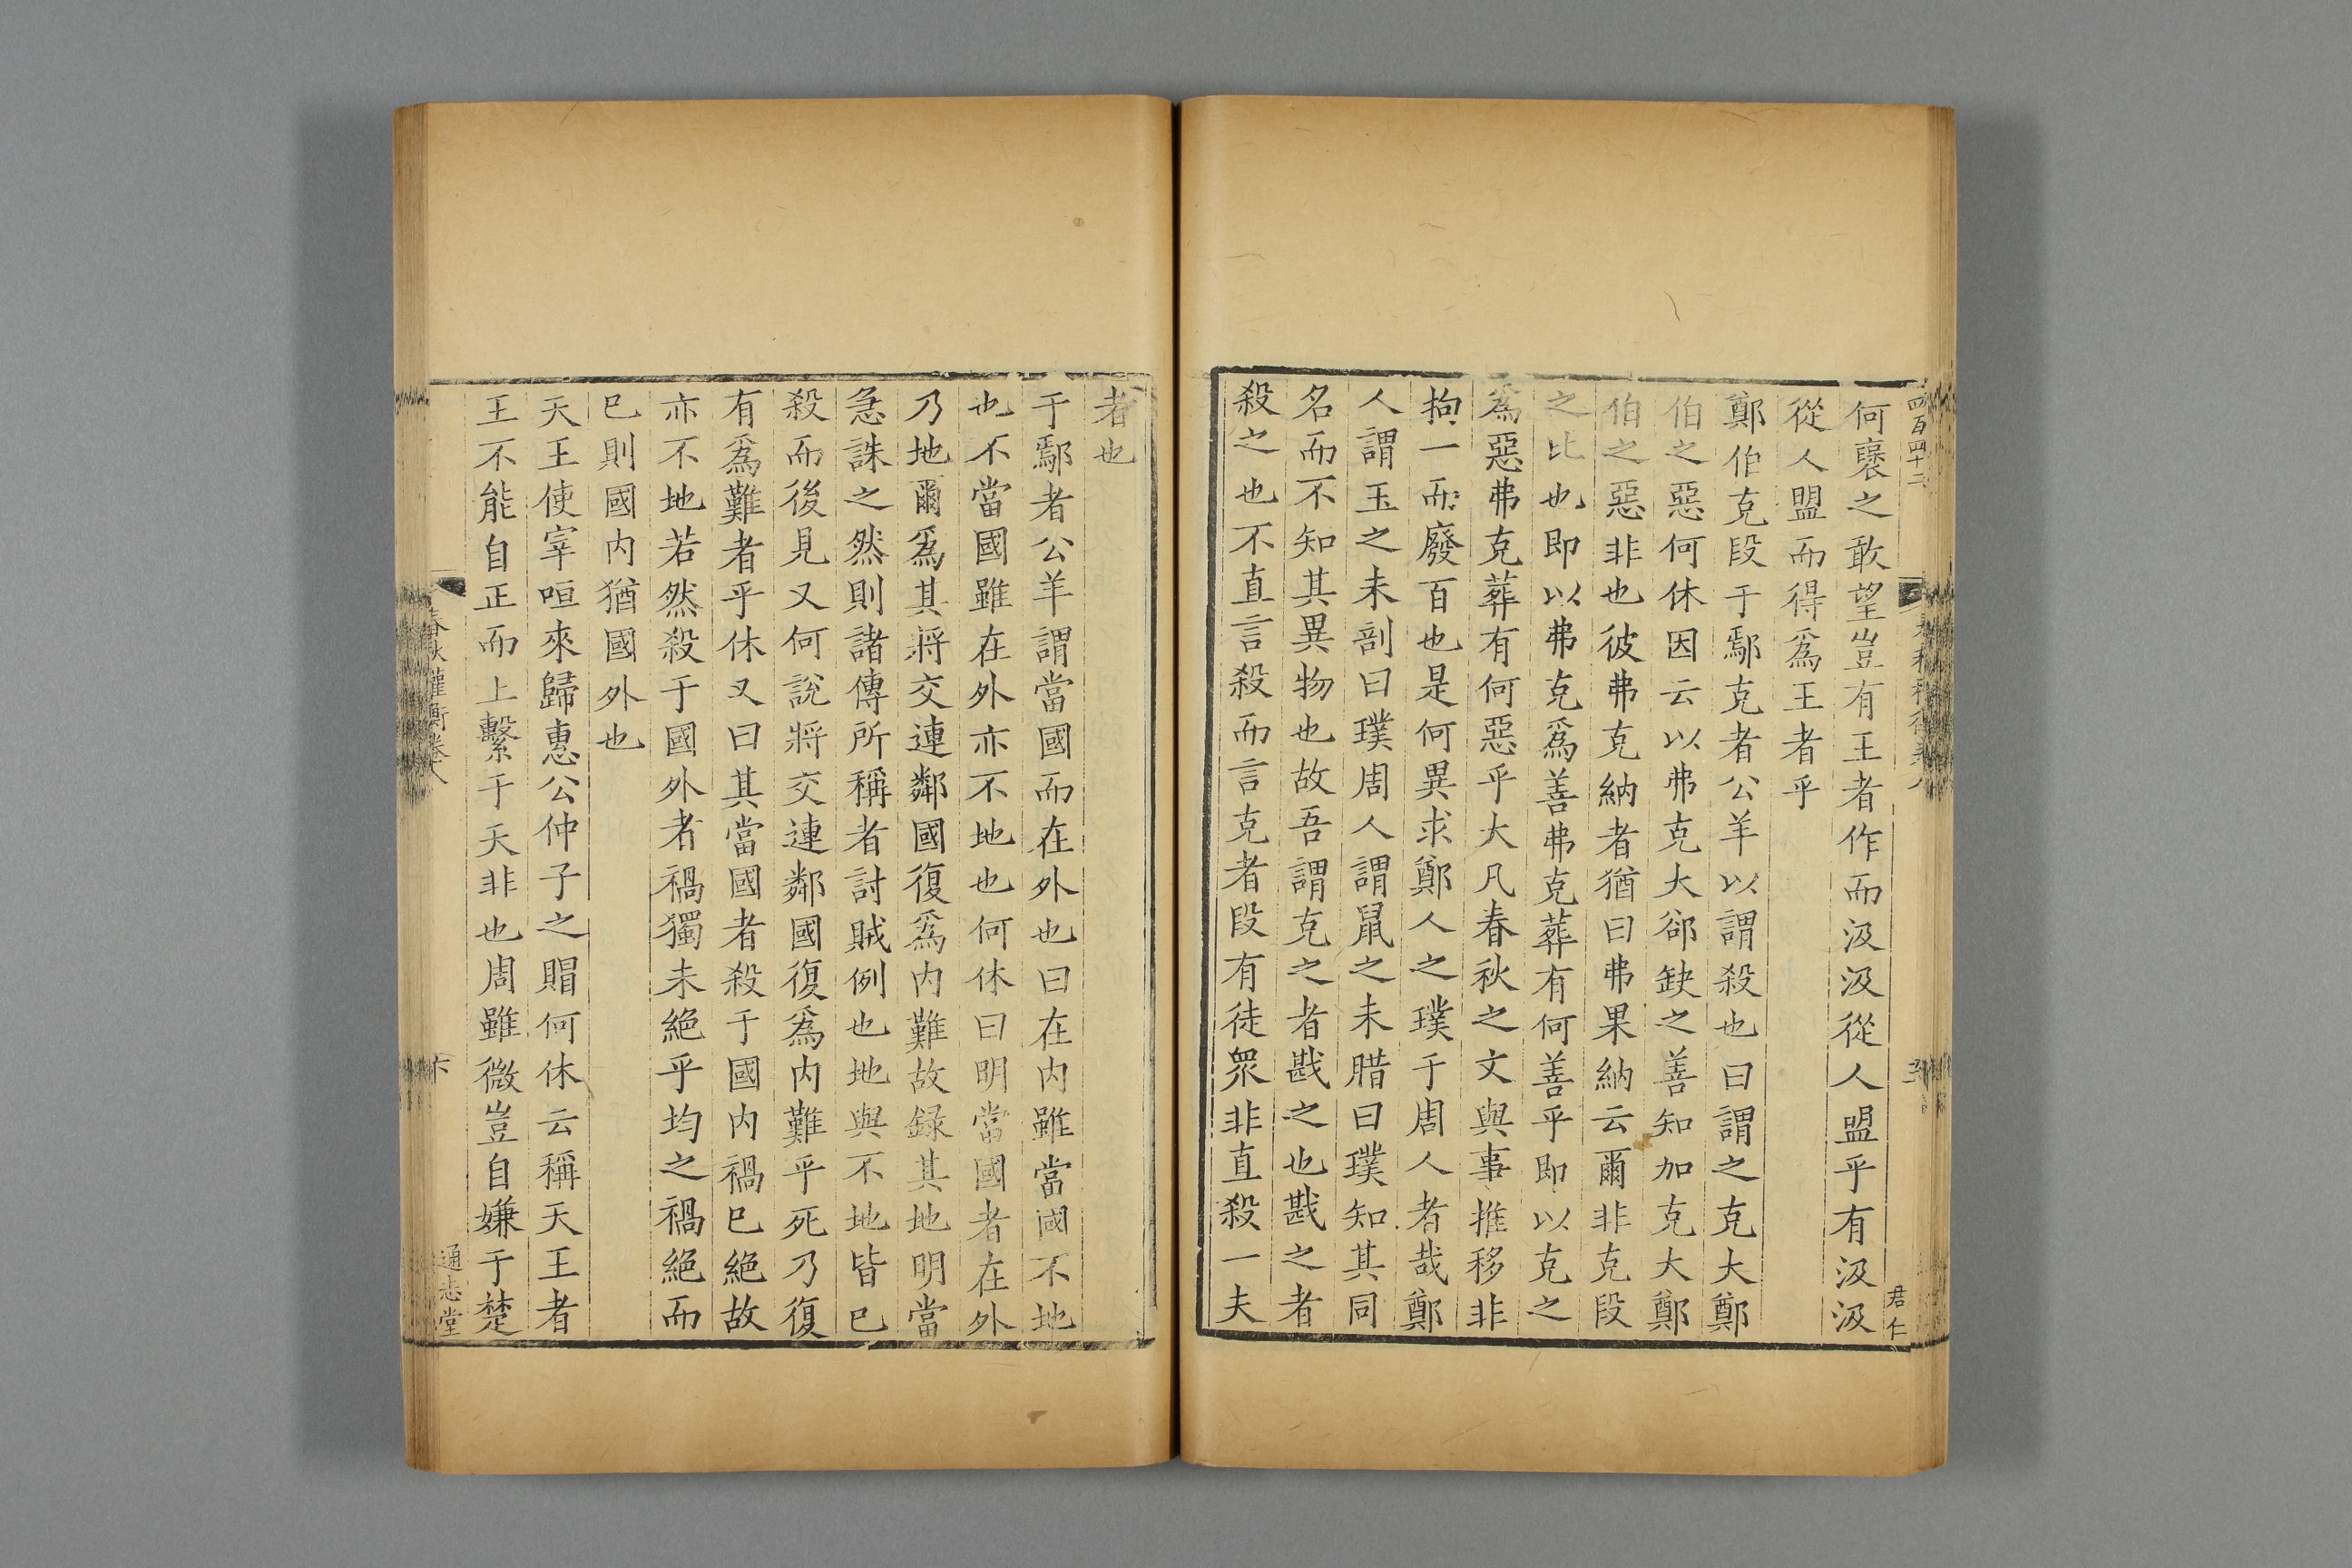 四百四十二
何襃之敢望豈有王者作而汲汲從人盟乎有汲汲
從人盟而得爲王者乎
鄭伯克段于鄢克者公羊以謂殺也曰謂之克大鄭
伯之惡何休因云以弗克大郤缺之善知加克大鄭
伯之惡非也彼弗克納者猶曰弗果納云爾非克段
之比也即以弗克爲善弗克葬有何善乎即以克之
爲惡弗克葬有何惡乎大凡春秋之文與事推移非
拘一而廢百也是何異求鄭人之璞于周人者哉鄭
人謂玉之未剖曰璞周人謂鼠之未腊曰璞知其同
名而不知其異物也故吾謂克之者戡之也戡之者
殺之也不直言殺而言克者段有徒衆非直殺一夫
君仁
者也
于鄢者公羊謂當國而在外也曰在内雖當國不地
也不當國雖在外亦不地也何休曰明當國者在外
乃地爾爲其將交連鄰國復爲内難故録其地明當
急誅之然則諸傳所稱者討賊例也地與不地皆已
殺而後見又何說將交連鄰國復爲内難乎死乃復
有爲難者乎休又曰其當國者殺于國内禍已絶故
亦不地若然殺于國外者禍獨未絶乎均之禍絶而
已則國内猶國外也
天王使宰咺來歸惠公仲子之賵何休云稱天王者
王不能自正而上繫于天非也周雖微豈自嫌于楚
春秋權衡卷八
通志堂